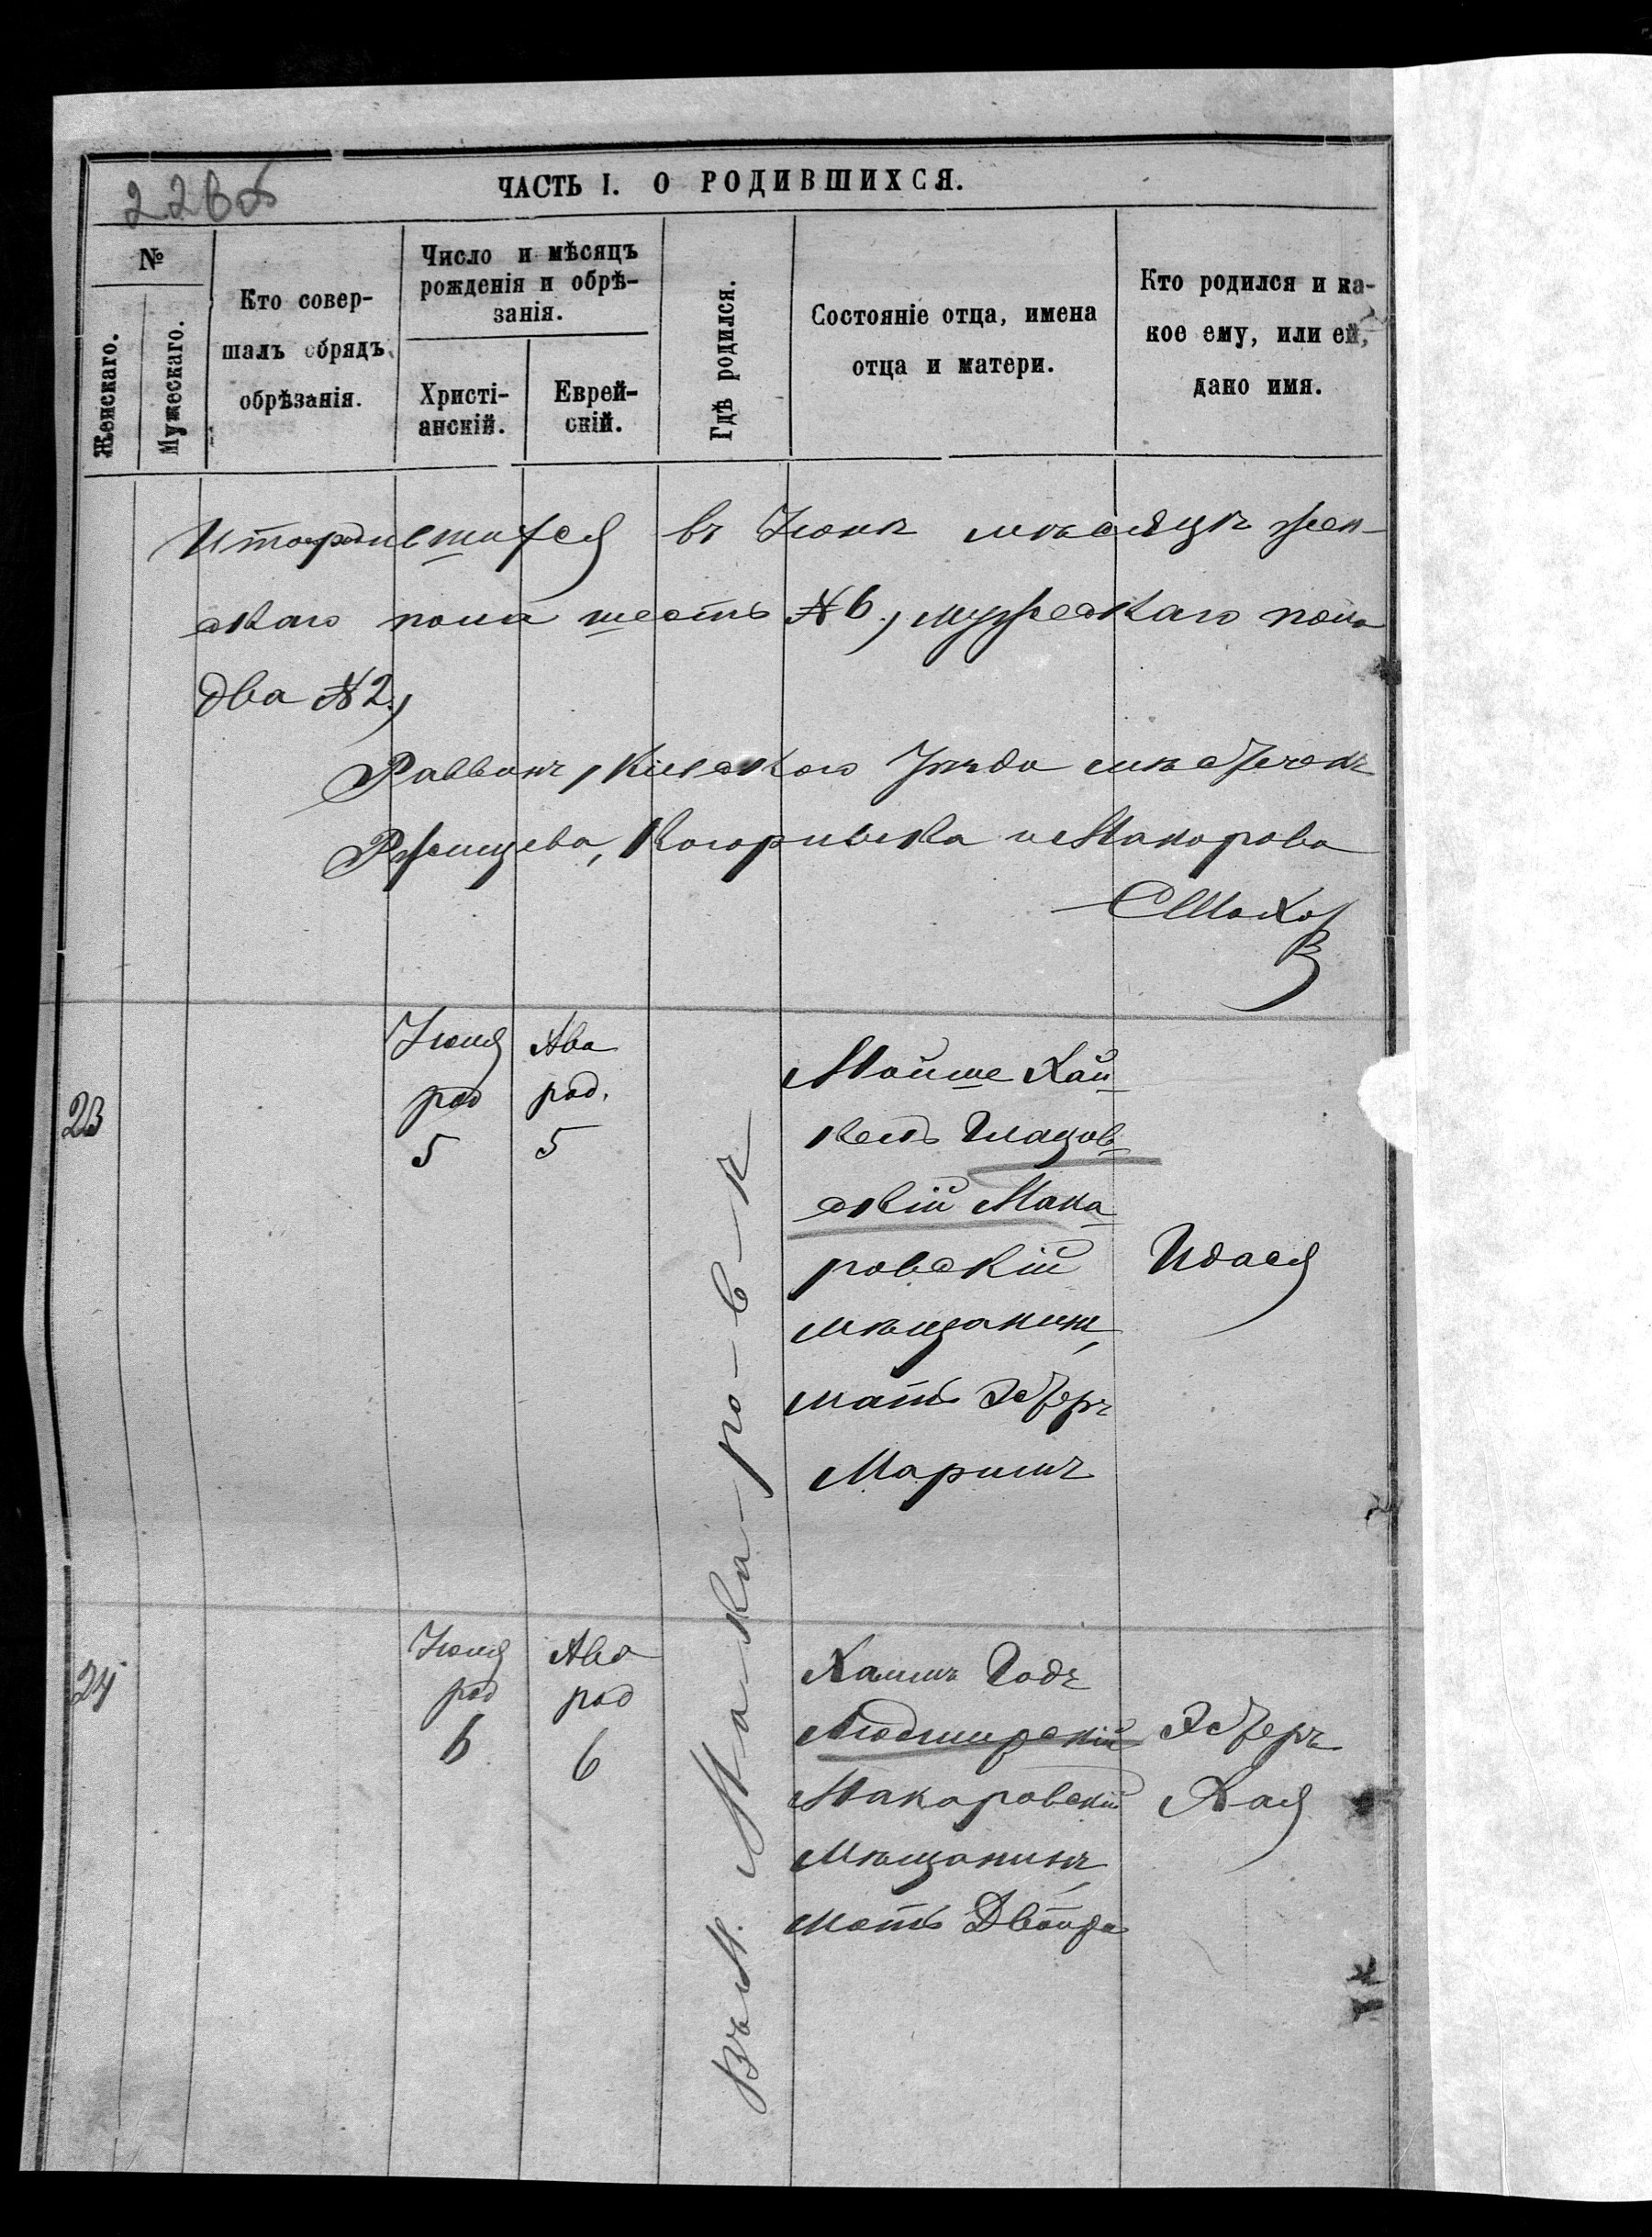 226об
ЧАСТЬ I. О РОДИВШИХСЯ.
№
Женскаго.
Мужескаго.
Кто совер-
шалъ обрядъ
обрѣзанія.
Число и мѣсяцъ
рожденія и обрѣ-
занія.
Христі-
анскій.
Еврей-
скій.
Гдѣ родился.
Состояніе отца, имена
отца и матери.
Кто родился и ка-
кое ему, или ей,
дано имя.
Итого родившихся въ Іюнѣ мѣсяцѣ жен-
скаго пола шесть №6, мужескаго пола
два №2,
Раввинъ, Кіевскаго Уѣзда мѣстечекъ
Ржищева, Кагарлыка и Макарова
23
Іюля
род
5
Ава
род.
5
Въ М. Ма-ка-ро-в-ѣ
Мойше Хай-
кель
скій Мака-
ровскій
мѣщанинъ,
мать Эстеръ
Маримъ
Идася
24
Іюля
род
6
Ава
род
6
Хаимъ Годъ
Людмирскій
Макаровскій
Мѣщанинъ,
мать Двойра
Эстеръ
Хая